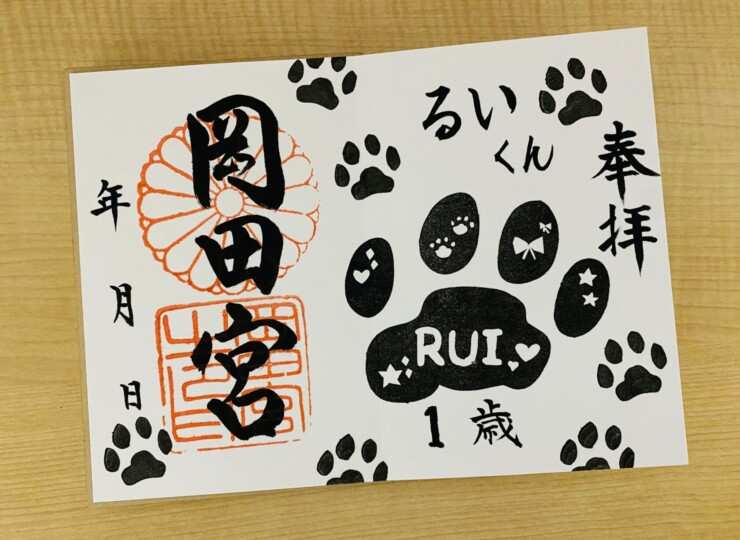 奉拝
るい
くん
RUI
1歳
岡田宮
年月日